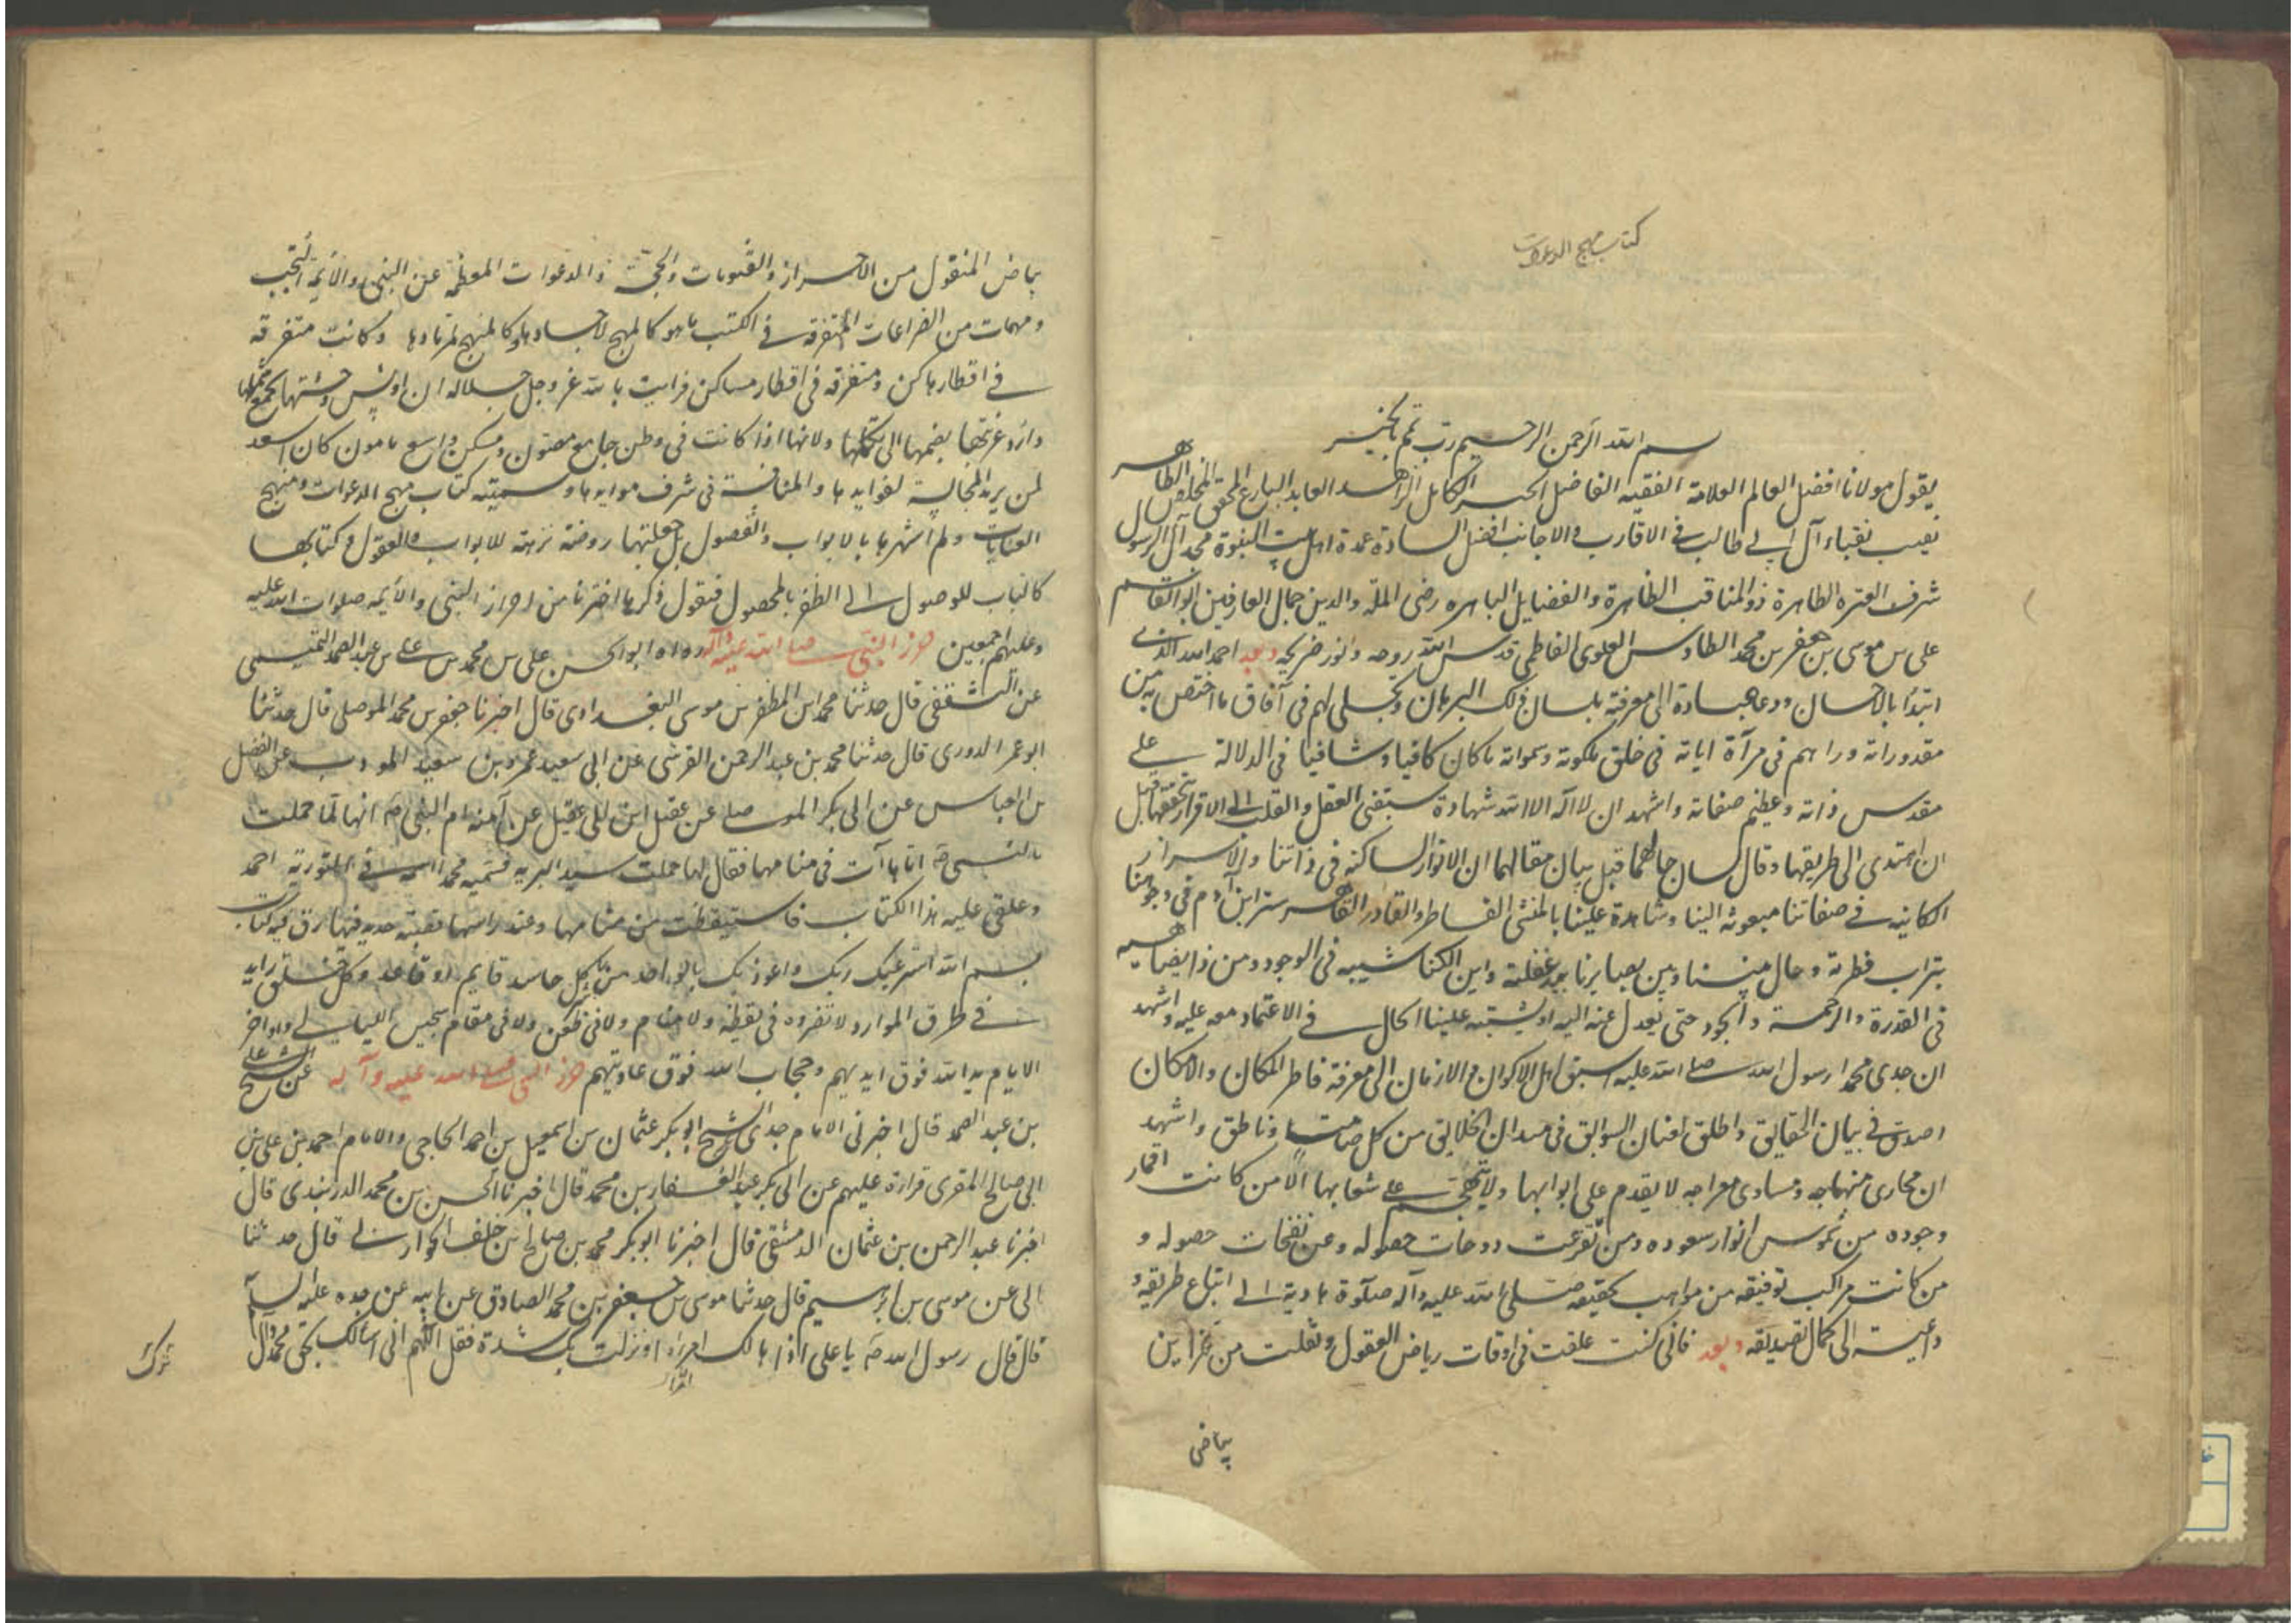 كتاب مهج الدعوات
بسم الله الرحمن الرحيم رب تمم بالخير
يقول مولانا افضل العالم العلامة الفقيه الفاضل الحبر الكامل الزاهد العابد البارع المحقق المخلص الطاهر
نقيب نقباء آل ابي طالب في الاقارب والاجانب افضل السادة عمدة اهل بيت النبوة مجد آل الرسول
شرف العترة الطاهرة ذو المناقب الظاهرة والفضايل الباهره رضى الملة والدين جمال العارفين ابو القاسم
على بن موسى بن جعفر بن محمد الطاوس العلوى الفاطمى قدس الله روحه ونور ضريحه وبعد احمد الله الذي
ابتدأ بالاحسان ودعا عباده الى معرفته بلسان ذلك البرهان وتجلى لهم في آفاق ما اختص به من
مقدوراته وراهم في مرآة اياته في خلق ملكوته وسمواته ما كان كافيا وشافيا في الدلالة على
مقدس ذاته وعظيم صفاته واشهد ان لا اله الا الله شهادة العقل والقلب الى الاقرار بتحقيقها قبل
ان اهتدى الى طريقها وقال لسان حالهما قبل بيان مقالهما ان الانوار الساكنة في ذاتنا والاسرار
الكاينه في صفاتنا مبعوثه الينا وشاهدة علينا بالمنشى الفاطر والقادر القاهر ستر ابن آدم في وجوهنا
بتراب فطرته وحال بيننا وبين بصايرنا بيد غفلته واين الكفا شبيه في الوجود ومن ذا يضاهيه
في القدرة والرحمة والجود حتى يعدل عنه اليه او يشتبه علينا الحال في الاعتماد معه عليه واشهد
ان جدى محمدا رسول الله صلى الله عليه اسبق اهل الاكوان والازمان الى معرفة فاطر المكان والامكان
اصدق في بيان الحقايق واطلق افنان السوابق في ميدان الخلايق من كل صامت وناطق واشهد
ان مجارى منهاجه ومساوى معراجه لا يقدم على ابوابها ولا يتهجم على شعابها الا من كانت اقمار
وجوده من شموس انوار سعوده ومن تفرعت دوحات حصوله وعن نفحات حصوله و
من كانت مراكب توفيقه من مواهب تحقيقه صلى الله عليه وآله صلوة هادية الى اتباع طريقه و
داعية الى كمال تصديقه وبعد فانى كنت علقت في اوقات رياض العقول ونقلت من خزاين
بياض
بياض المنقول من الاحراز والقنوتات والحجب والدعوات المعظمة عن النبي والائمة النجب
ومهمات من الضراعات المتفرقه في الكتب ما هو كالمهج لاجسادها وكالمنهج لمرتادها وكانت متفرقه
في اقطار اماكن ومتفرقه في اقطار مساكن فرايت بالله عز وجل جلاله ان اونس وحشتها بجمع شملها
وارد غربتها بضمها الى شكلها ولانها اذا كانت في وطن جامع مصون ومسكن واسع مامون كان اسعد
لمن يريد المجالسة لفوايدها والمنافسة في شرف موايدها وسميته كتاب مهج الدعوات ومنهج
العنايات ولم اشهرها بالابواب والفصول بل جعلتها روضة نزهة للالباب والعقول وكتابها
كالباب للوصول الى الظفر بالمحصول فنقول ذكر ما اخترنا من احراز النبي والائمه صلوات الله عليه
وعليهم اجمعين حرز النبي صلى الله عليه وآله رواه ابو الحسن على بن محمد بن على بن عبد الصمد التميمي
عن الثقفى قال حدثنا محمد ابن المظفر بن موسى البغدادى قال اخبرنا جعفر بن محمد الموصلى قال حدثنا
ابو عمر الدورى قال حدثنا محمد بن عبد الرحمن القرشى عن ابي سعيد عمرو بن سعيد المودب عن الفضل
بن العباس عن ابى بكر الموصلى عن عقيل ابن ابى عقيل عن آمنة ام النبي انها لما حملت
بالنبى اتاها آت في منامها فقال لها حملت سيد البريه فسميه محمدا اسمه في التورية احمد
وعلقى عليه هذا الكتاب فاستيقظت من منامها وعند راسها قصبة حديد فيها رق فيه كتاب
بسم الله استرعيك ربك واعوذ بك بالواحد من شر كل حاسد قايم او قاعد وكل خلق رايد
في طرق الموارد لا تضروه في يقظة ولا منام ولا في ظعن ولا في مقام سجيس الليالي واواخر
الايام يد الله فوق ايديهم وحجاب الله فوق عاديتهم حرز النبى صلى الله عليه وآله عن الشيخ على
بن عبد الصمد قال اخبرنى الامام جدى الشيخ ابو بكر عثمان بن اسمعيل بن احمد الحاجى والامام احمد بن على بن
ابى صالح المقرى قرارة عليهم عن ابى بكر عبد الغفار بن محمد قال اخبرنا الحسن بن محمد الدربندى قال
اخبرنا عبد الرحمن بن عثمان الدمشقى قال اخبرنا ابو بكر محمد بن صالح بن خلف الجوارنى قال حدثنا
ابى عن موسى بن ابرهيم قال حدثنا موسى بن جعفر بن محمد الصادق عن ابيه عن جده عليهم السلام
قال قال رسول الله يا على اذا هالك امرا او نزلت بك شدة فقل اللهم انى اسالك بحق محمد وآل